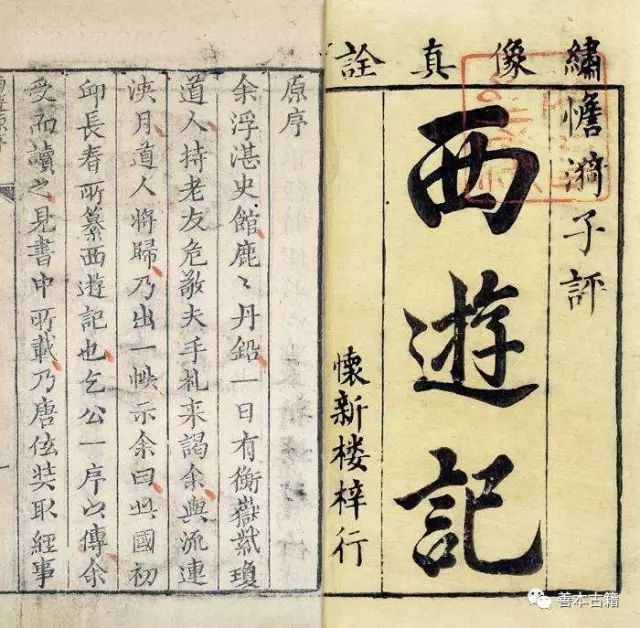 繡像真詮
憺漪子評
西遊記
懷新楼梓行
原序
余浮湛史館鹿〻丹鉛一日有衡嶽紫瓊
道人持老友危敬夫手札来謁余與流連
浹月道人将歸乃出一帙示余曰此國初
邱長春所纂西遊記也乞公一序以傳余
受而讀之見書中所載乃唐玄奘取經事
善本古籍